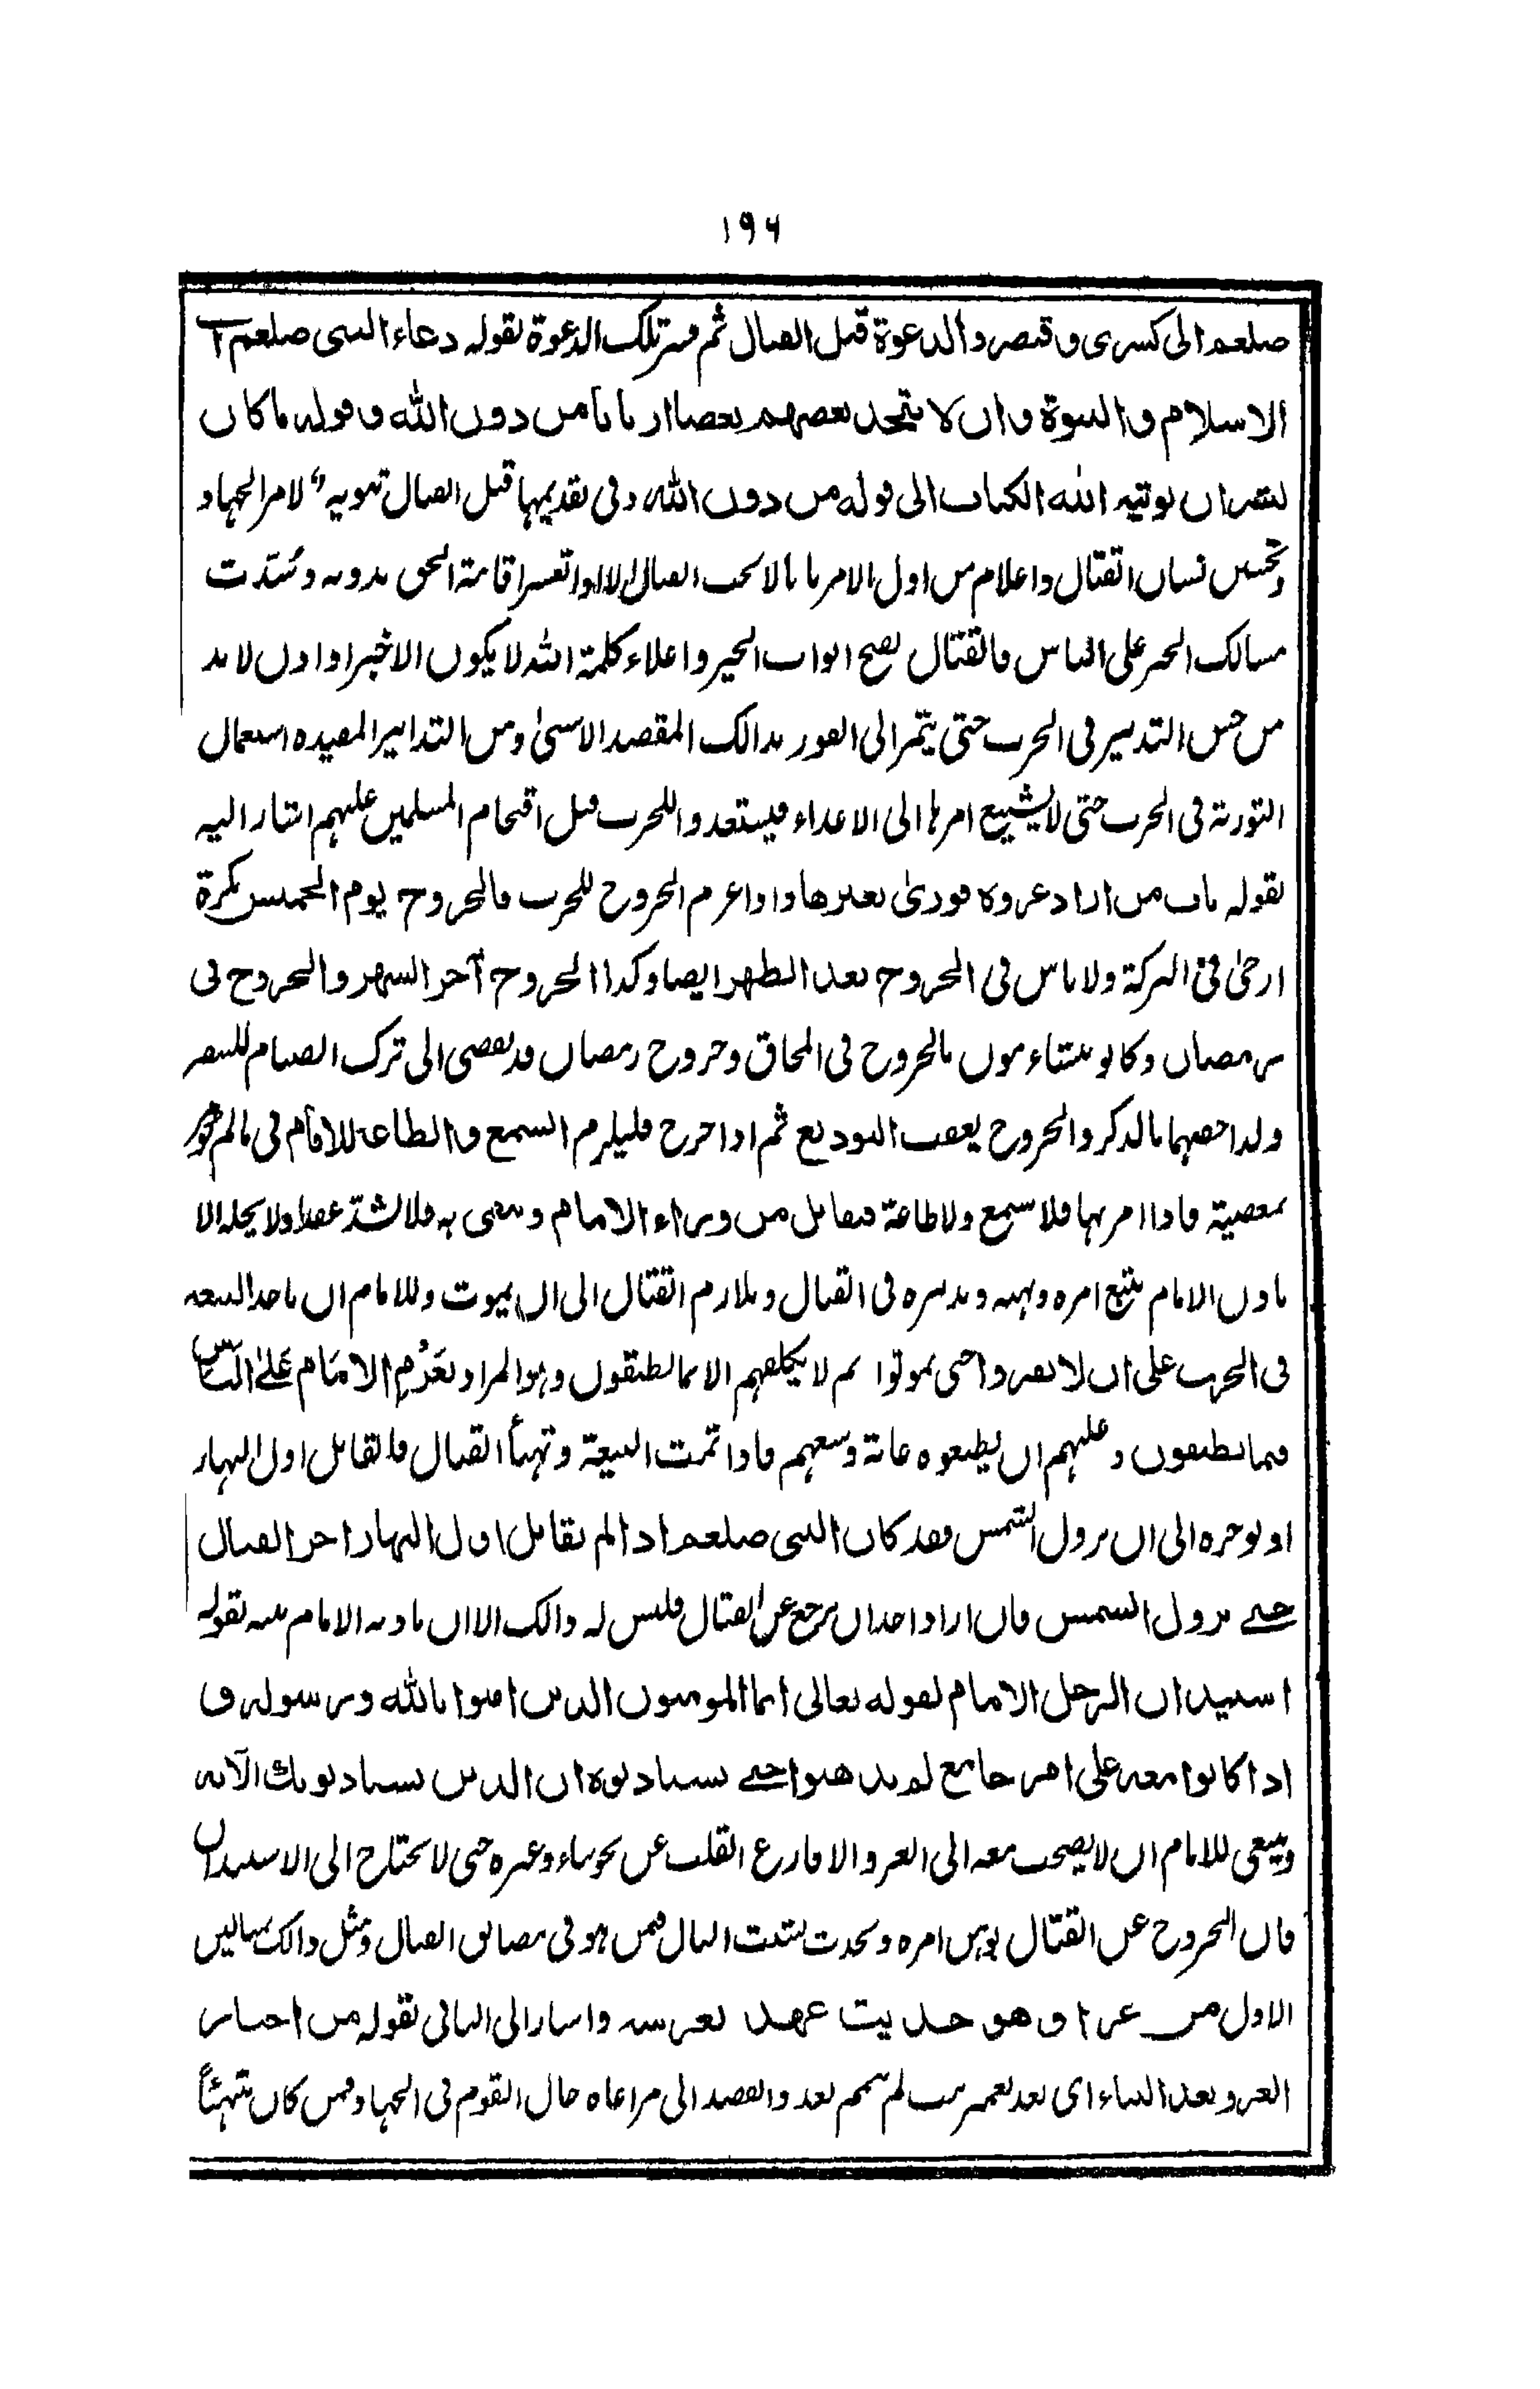 ۱۹۶
صلعم الى كسرى و قيصر والدعوة قبل القتال ثم فسر تلك الدعوة بقوله دعاء النبى صلعم الى
الاسلام والنبوة وان لا يتخذ بعضهم بعضا اربابا من دون الله وقوله ما كان
لبشر ان يوتيه الله الكتاب الى قوله من دون الله وفى تقديمها قبل القتال لامر الجهاد
القتال واعلام من اول الامر القتال اقامة الحق بدونه وسُدّت
مسالك الخير على الناس فالقتال ابواب الخير واعلاء كلمة الله لا يكون الا خيرا واذن لا بد
من حسن التدبير فى الحرب حتى يتمر الى الفوز بذالك المقصد الاسنىٰ ومن التدابير المفيده استعمال
التورية فى الحرب حتى لا يشيع امرها الى الاعداء فيستعدوا للحرب قبل اقتحام المسلمين عليهم اشار اليه
بقوله باب من اراد غزوة فورىٰ بغيرها واذا عزم الخروج للحرب فالخروج يوم الخميس بكرة
ارجىٰ فى البركة ولا باس فى الخروج بعد الظهر ايضا وكذا الخروج آخر الشهر والخروج فى
رمضان وكانو يتشاءمون بالخروج فى المحاق وخروج رمضان قد يفضى الى ترك الصيام للسفر
ولذا خصهما بالذكر والخروج يعقب التوديع ثم اذا خرج فليلزم السمع والطاعة للامام فى ما لم
بمعصية فاذا امر بها فلا سمع ولا طاعة فيقاتل من وراء الامام ويتقى به فلا يشدّ عقدا ولا يحله الا
باذن الامام يتبع امره ونهيه وتدبيره فى القتال ويلازم القتال الى ان يموت وللامام ان ياخذ البيعه
فى الحرب على ان لا يفروا حتى يموتوا ثم لا يكلفهم الا ما يطيقون وهو المراد بعَزْمِ الامَام عَلَے النَّاسِ
فيما يطيقون وعليهم ان يطيعوه غاية وسعهم فاذا تمت البيعة وتهيأ القتال فاليقاتل اول النهار
او يوخره الى ان يزول الشمس فقد كان النبى صلعم اذا لم يقاتل اول النهار اخر القتال
حتے يزول الشمس فان اراد احد ان يرجع عن القتال فليس له ذالك الا ان ياذنه الامام بقوله
استيذان الرجل الامام لقوله تعالى انما المومنون الذين امنوا بالله ورسوله و
اذا كانوا معه على امر جامع لم يذهبوا حتے يستاذنوه ان الذين يستاذنونك الآيه
وينبغى للامام ان لا يصحب معه الى الغزو الا فارغ القلب عن نحو بناء وغيره حتى لا يحتاج الى الاستيذان
فان الخروج عن القتال يوهن امره ويحدث تشتت البال فمن هو فى مصائق القتال ومثل ذالك
الاول من غزا وهو حديث عهد بعرسه واشار الى الثانى بقوله من اختار
الغزو بعد البناء اى بعد تعمير بيت لم يتم بعد والقصد الى مراعاة حال القوم فى الجهاد فمن كان متهيئاً